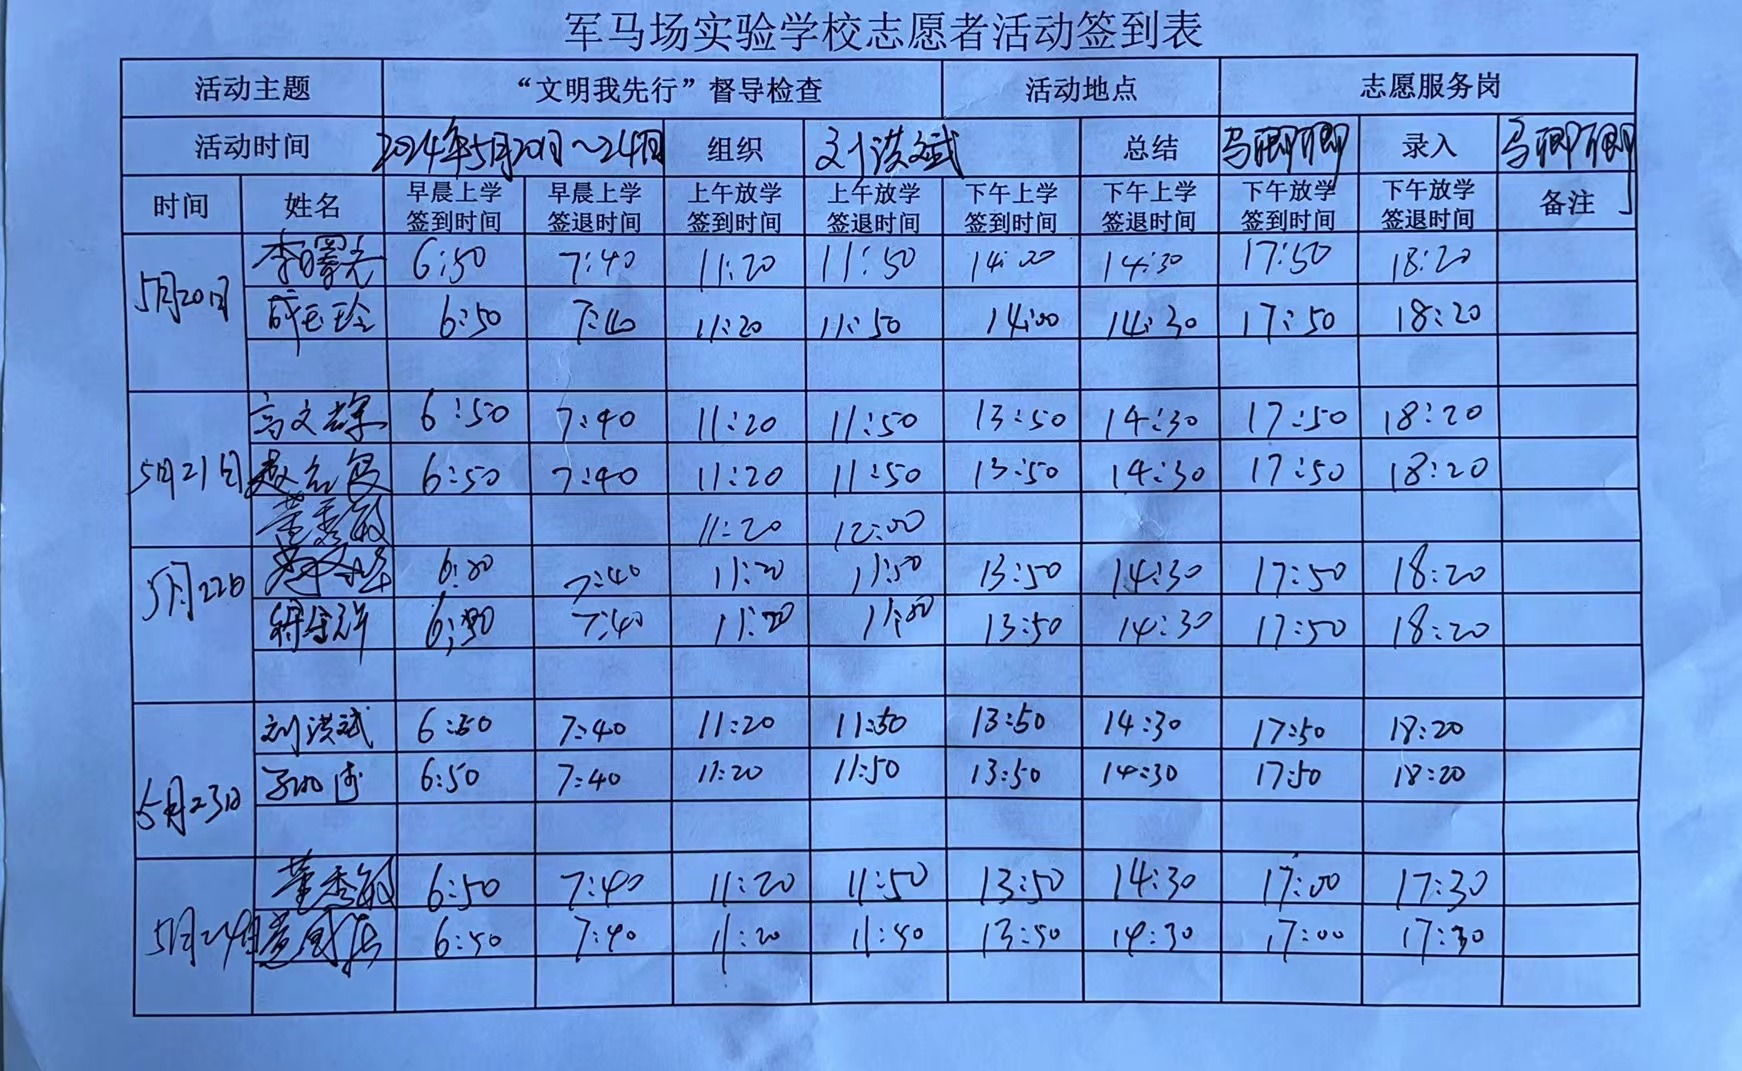 军马场实验学校志愿者活动签到表
活动主题 “文明我先行”督导检查 活动地点 志愿服务岗
活动时间 2024年5月20日~24日 组织 刘洪斌 总结 马卿卿 录入 马卿卿
时间 姓名 早晨上学签到时间 早晨上学签退时间 上午放学签到时间 上午放学签退时间 下午上学签到时间 下午上学签退时间 下午放学签到时间 下午放学签退时间 备注
5月20日 李曙光 6:50 7:40 11:20 11:50 14:00 14:30 17:50 18:20
薛玉玲 6:50 7:40 11:20 11:50 14:00 14:30 17:50 18:20
5月21日 高文 6:50 7:40 11:20 11:50 13:50 14:30 17:50 18:20
赵 6:50 7:40 11:20 11:50 13:50 14:30 17:50 18:20
董秀敏 11:20 12:00
5月22日 7:40 11:20 11:50 13:50 14:30 17:50 18:20
7:40 11:20 13:50 14:30 17:50 18:20
5月23日 刘洪斌 6:50 7:40 11:20 11:50 13:50 14:30 17:50 18:20
6:50 7:40 11:20 11:50 13:50 14:30 17:50 18:20
5月24日 董秀敏 6:50 7:40 11:20 11:50 13:50 14:30 17:00 17:30
6:50 7:40 11:20 11:50 13:50 14:30 17:00 17:30